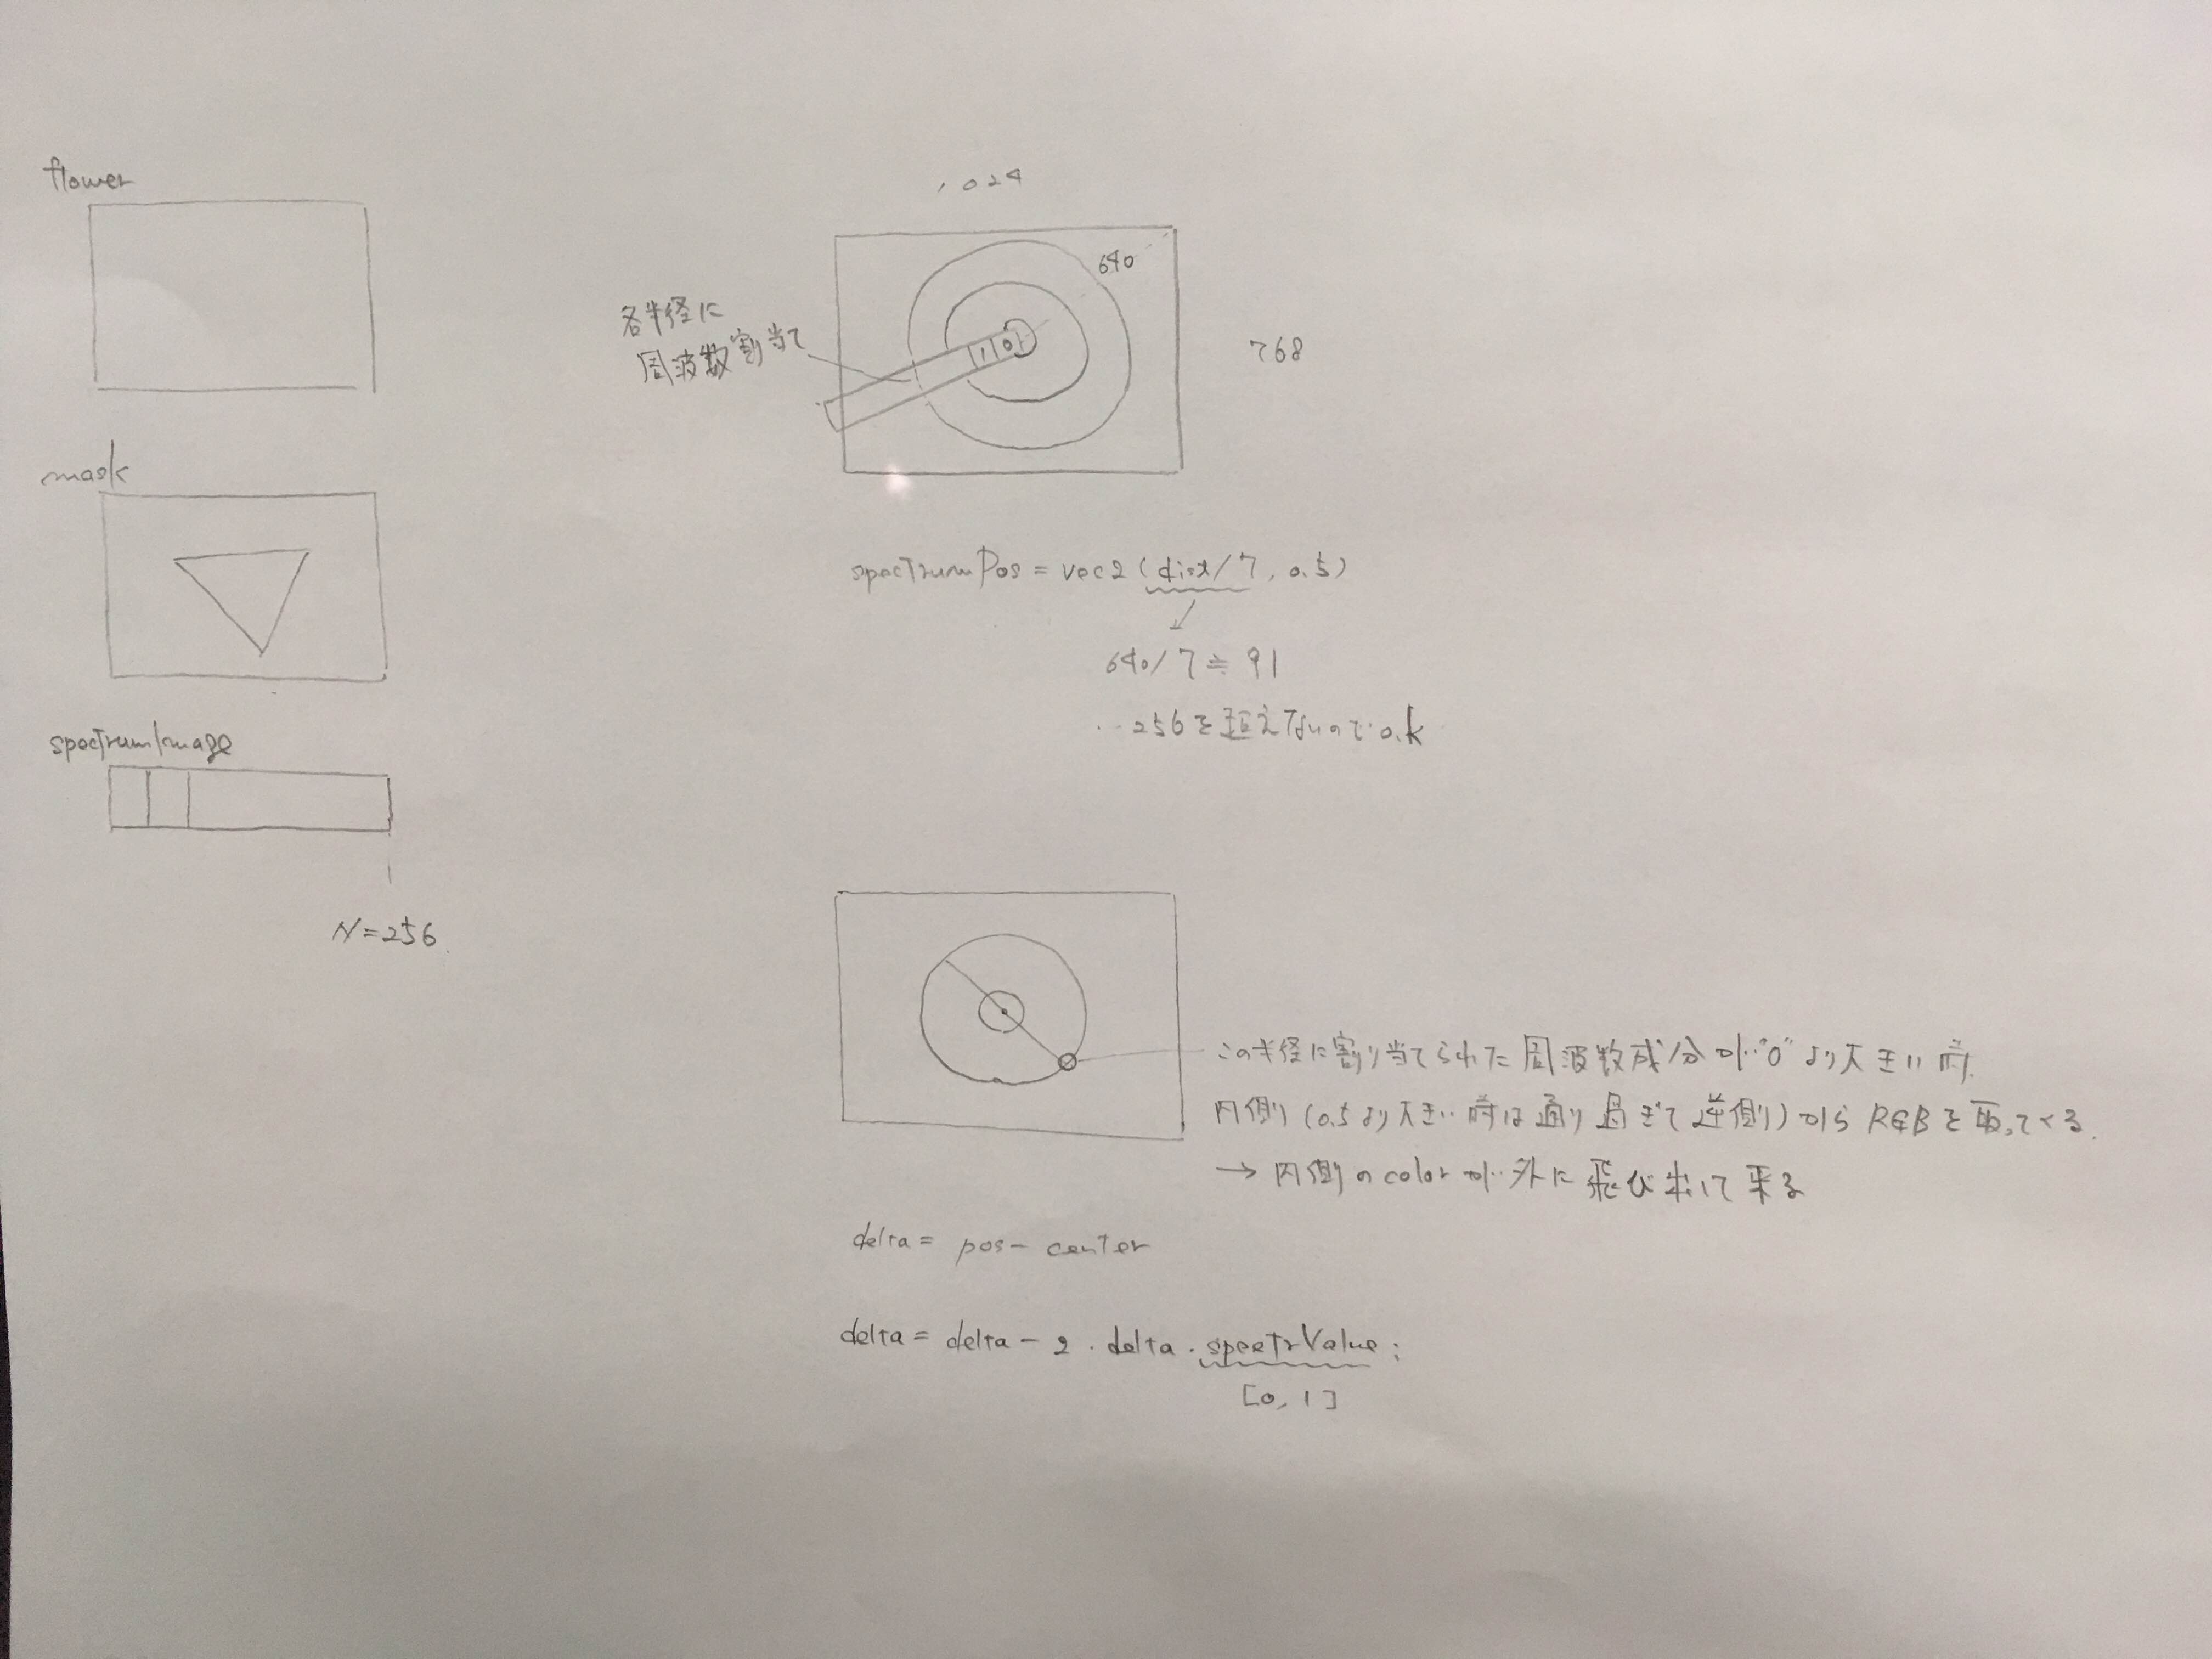 flower
mask
spectrumImage
N=256
1024
640
768
各半径に
周波数割当て
1 0
spectrumPos = vec2 (dist/7, 0.5)
640/7 ≒ 91
‥256を超えないのでo.k
この半径に割り当てられた周波数成分が"0"より大きい時
内側 (0.5より大きい時は通り過ぎて逆側) からRGBを取ってくる.
→ 内側のcolorが外に飛び出して来る
delta = pos - center
delta = delta - 2 · delta · spectrValue;
[0, 1]